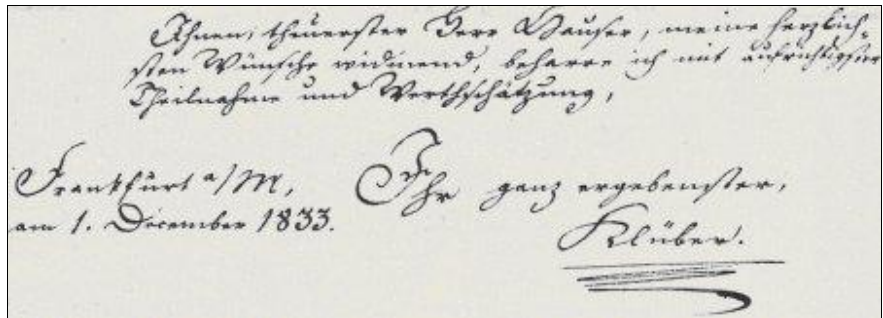 Ihnen, theuerster Herr Hauser, meine herzlich-
sten Wünsche widmend, beharre ich mit aufrichtigster
Theilnahme und Werthschätzung,
Frankfurt a/M,
am 1. December 1833.
Ihr ganz ergebenster,
Klüber.